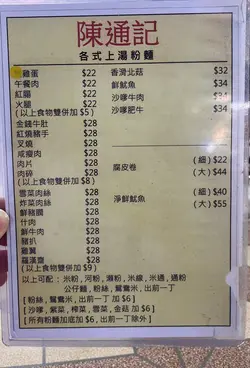 陳通記
各式上湯粉麵
雞蛋 $22
午餐肉 $22
紅腸 $22
火腿 $22
(以上食物雙併加 $5)
金錢牛肚 $28
紅燒豬手 $28
叉燒 $28
咸瘦肉 $28
肉片 $28
肉碎 $28
(以上食物雙併加 $8)
雪菜肉絲 $28
炸菜肉絲 $28
鮮豬膶 $28
什肉 $28
鮮牛肉 $28
豬扒 $28
雞翼 $28
羅漢齋 $28
(以上食物雙併加 $9)
香滑北菇 $32
鮮魷魚 $34
沙嗲牛肉 $34
沙嗲肥牛 $34
腐皮卷 (細) $22
(大) $44
淨鮮魷魚 (細) $40
(大) $55
以上可配：米粉，河粉，瀨粉，米線，米通，通粉
公仔麵，粉絲，鴛鴦米，出前一丁
[ 粉絲，鴛鴦米，出前一丁 加 $6 ]
[ 沙嗲，紫菜，榨菜，雪菜，金菇 加 $6 ]
[ 所有粉麵加底加 $6，出前一丁除外 ]